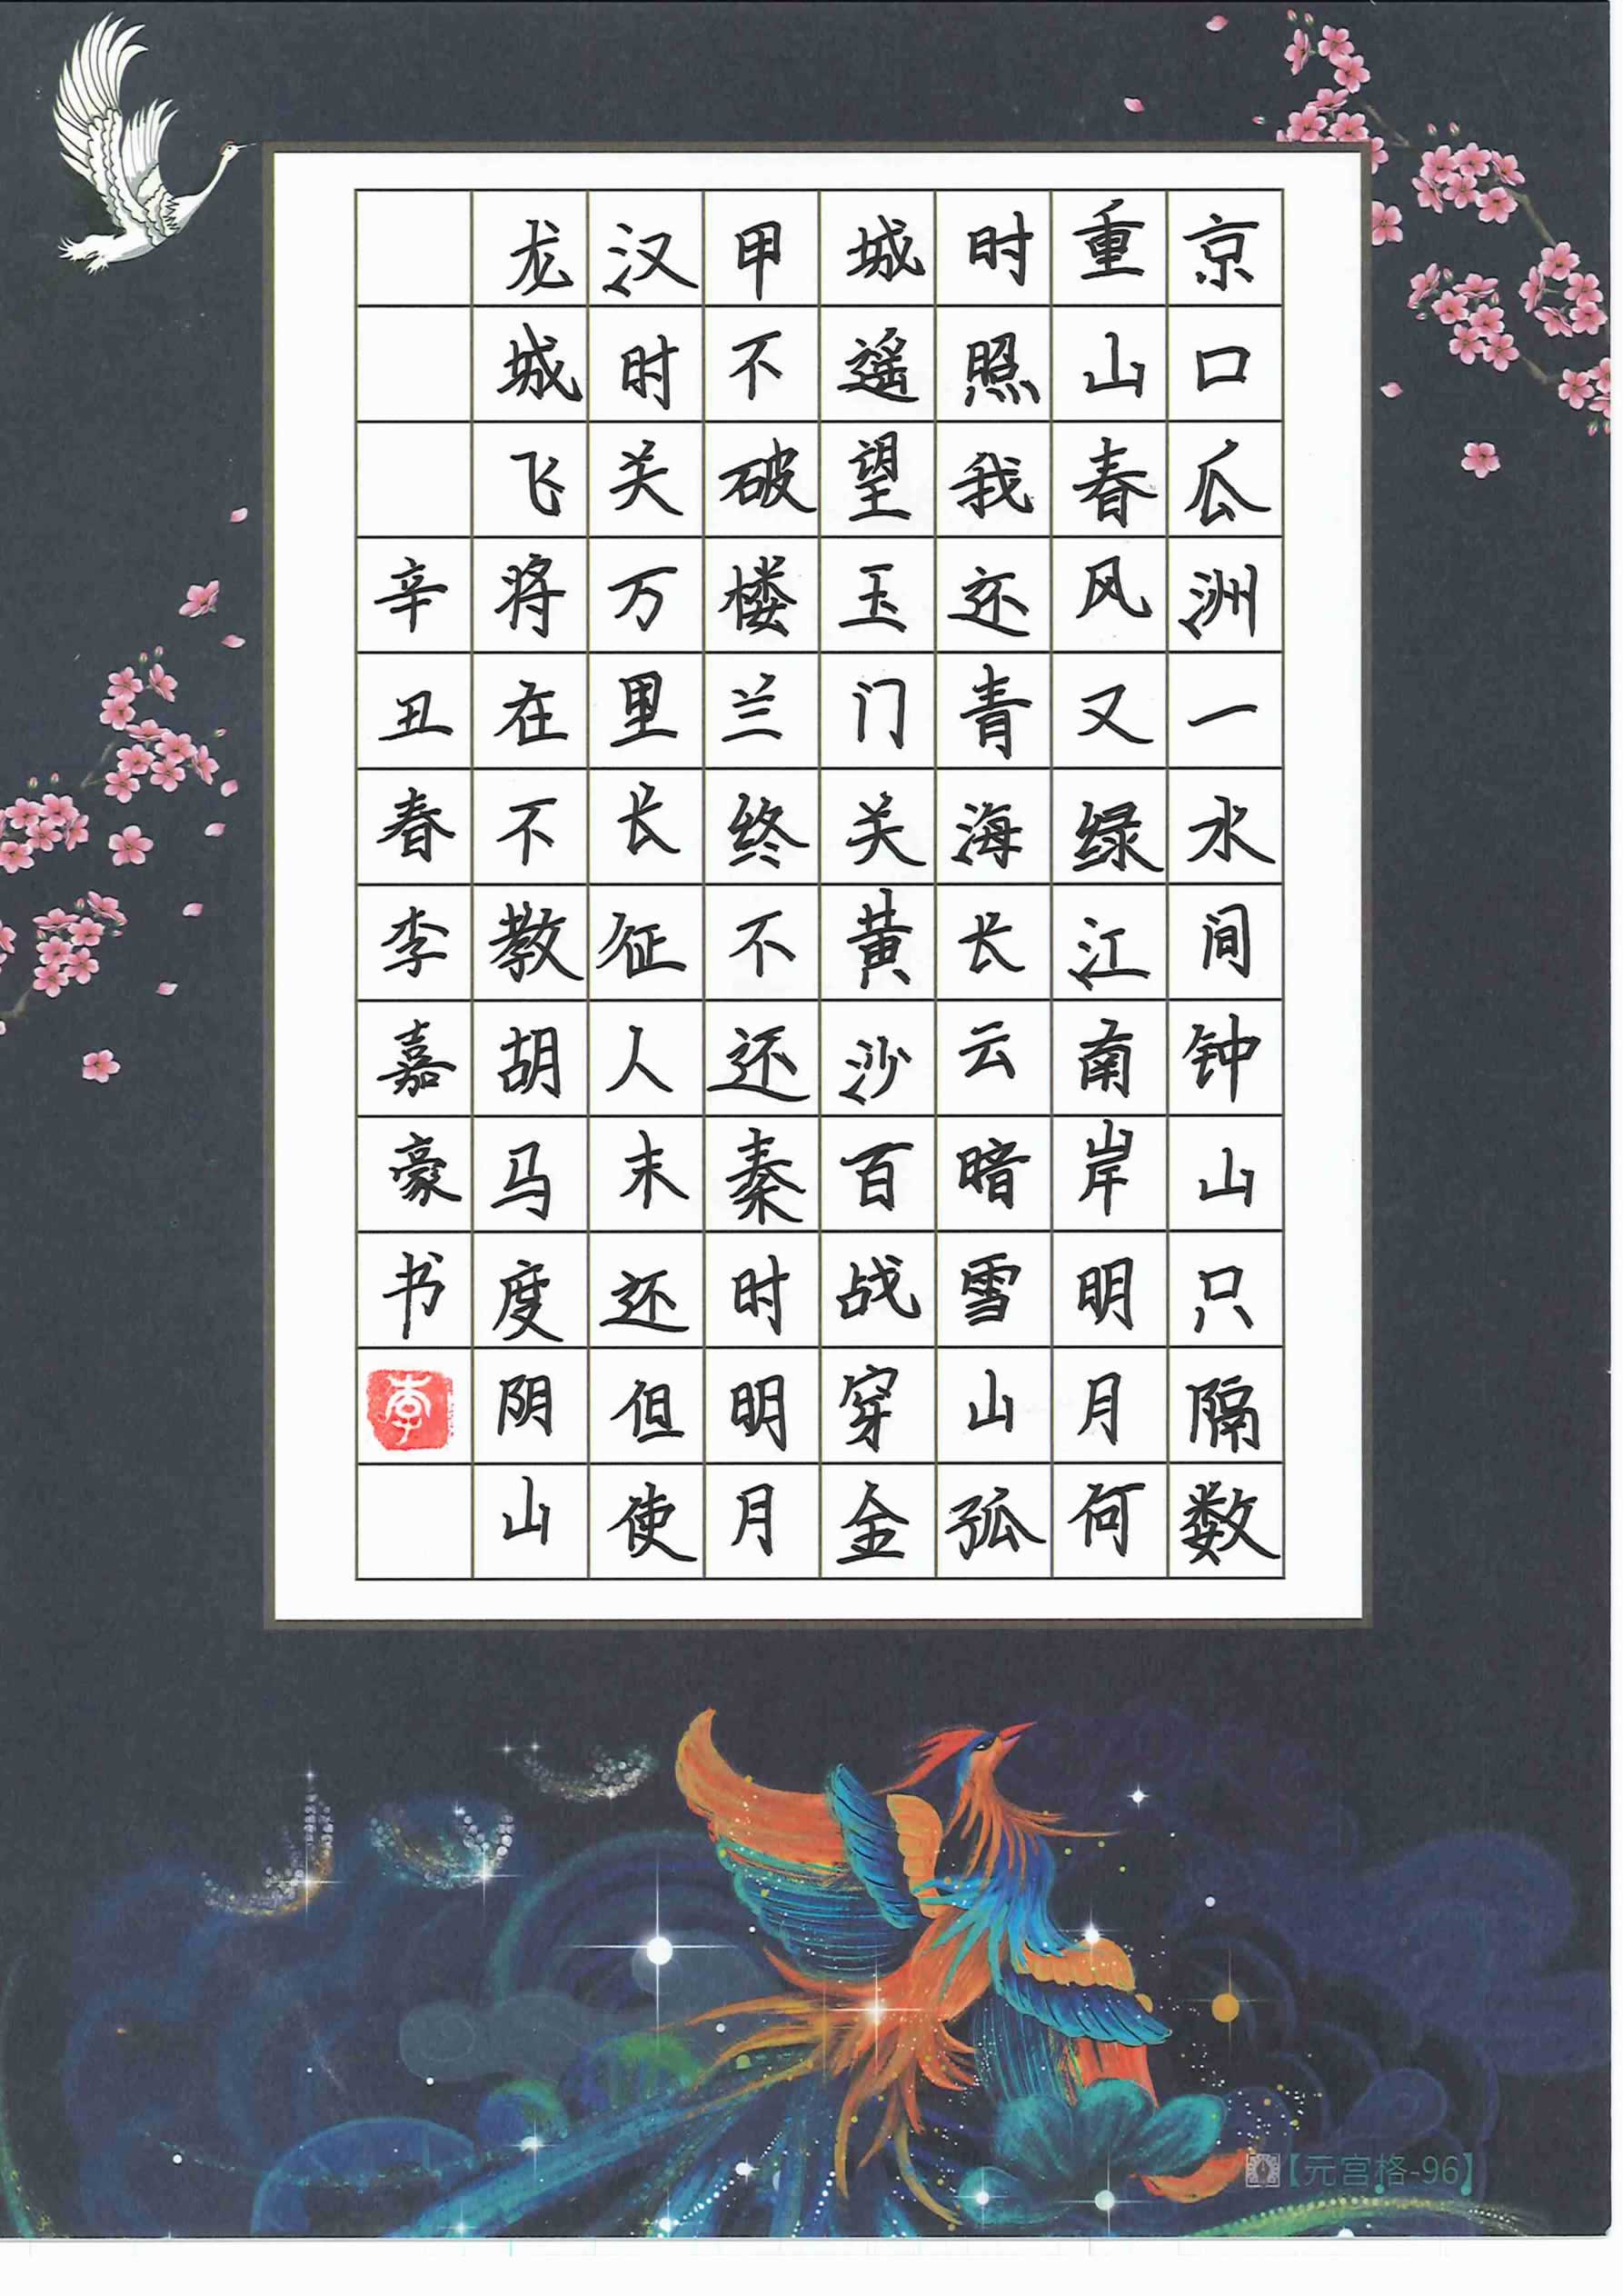 京口瓜洲一水间钟山只隔数
重山春风又绿江南岸明月何
时照我还青海长云暗雪山孤
城遥望玉门关黄沙百战穿金
甲不破楼兰终不还秦时明月
汉时关万里长征人末还但使
龙城飞将在不教胡马度阴山
辛丑春李嘉豪书
李
【元宫格-96】